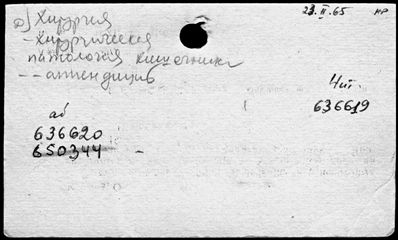 а) Хирургия
23.II.65 нр
– хирургическая
патология кишечника
-- аппендицив
Чит.
636619
аб
636620
650344 –